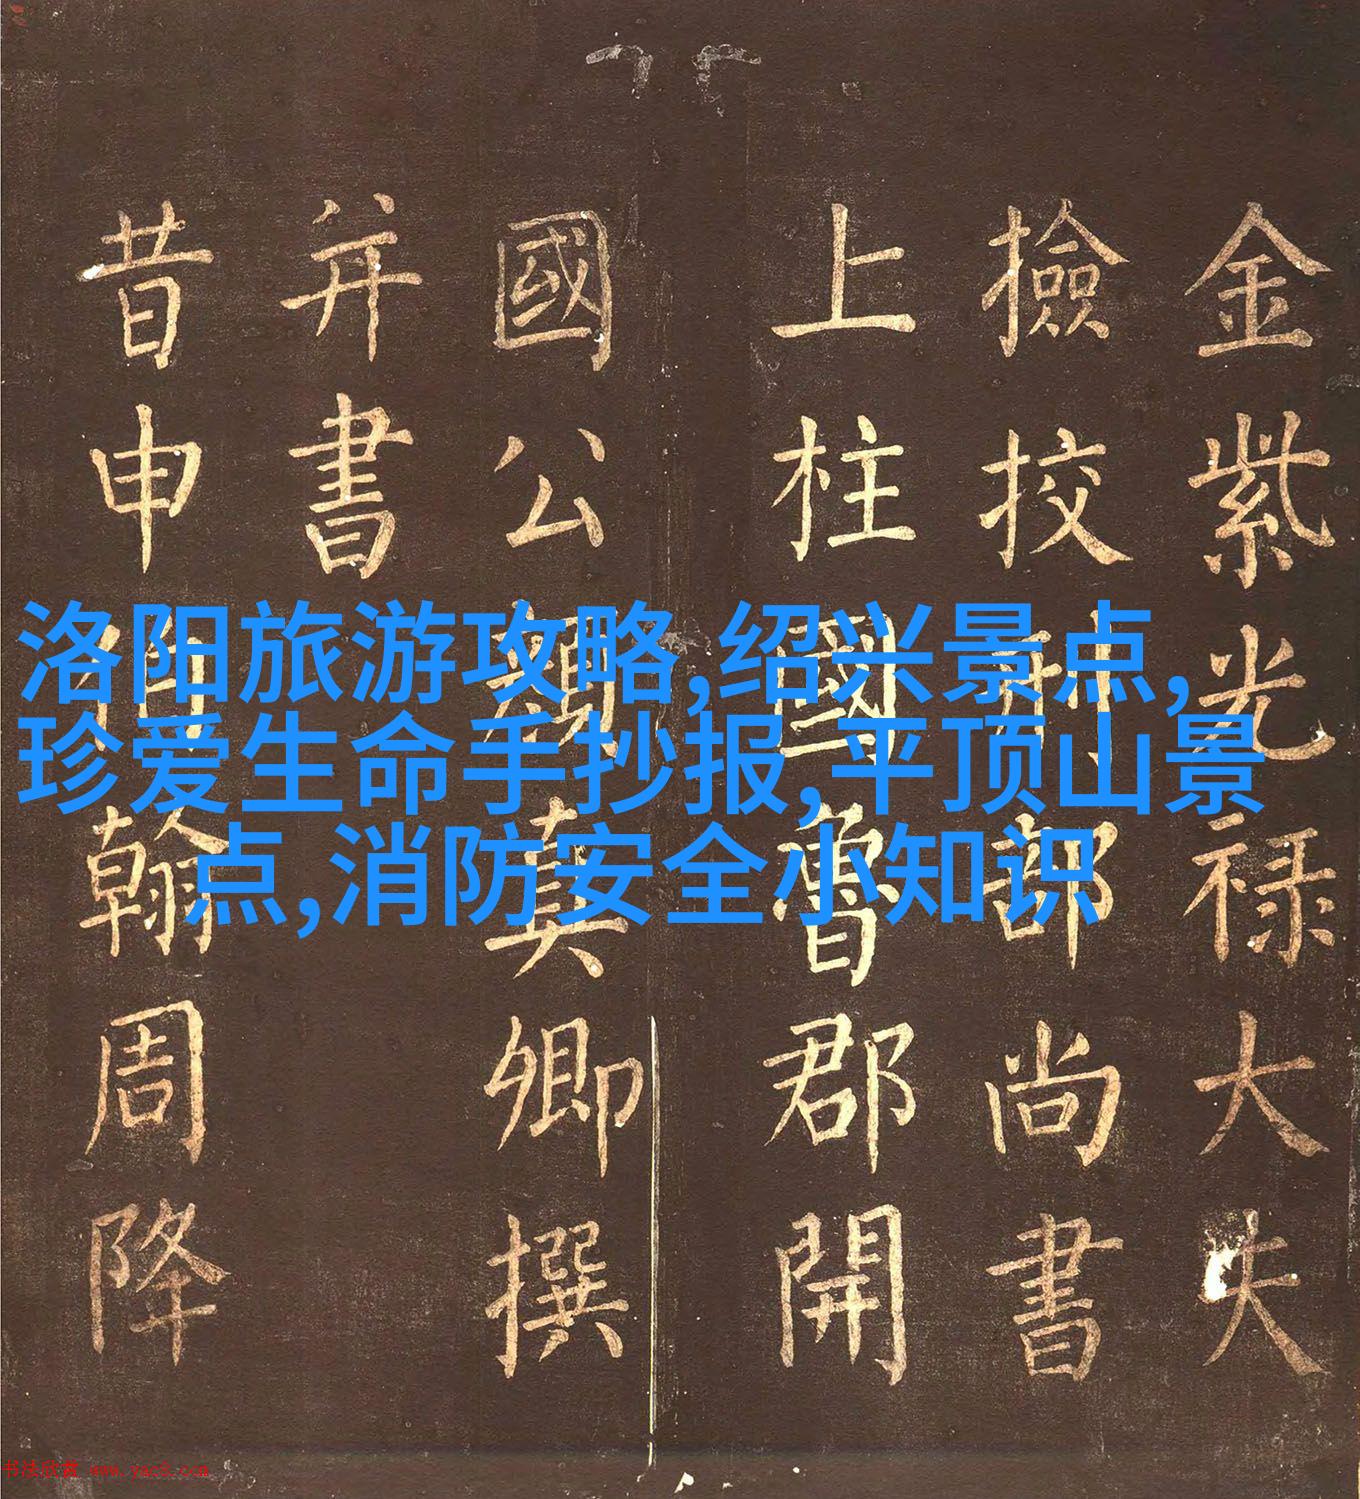 金紫光禄大夫
撿挍刑部尚書
上柱國魯郡開
國公顔真卿撰
并書
昔申伯翰周降
洛阳旅游攻略,绍兴景点,
珍爱生命手抄报,平顶山景
点,消防安全小知识
书法欣赏 www.yac8.com